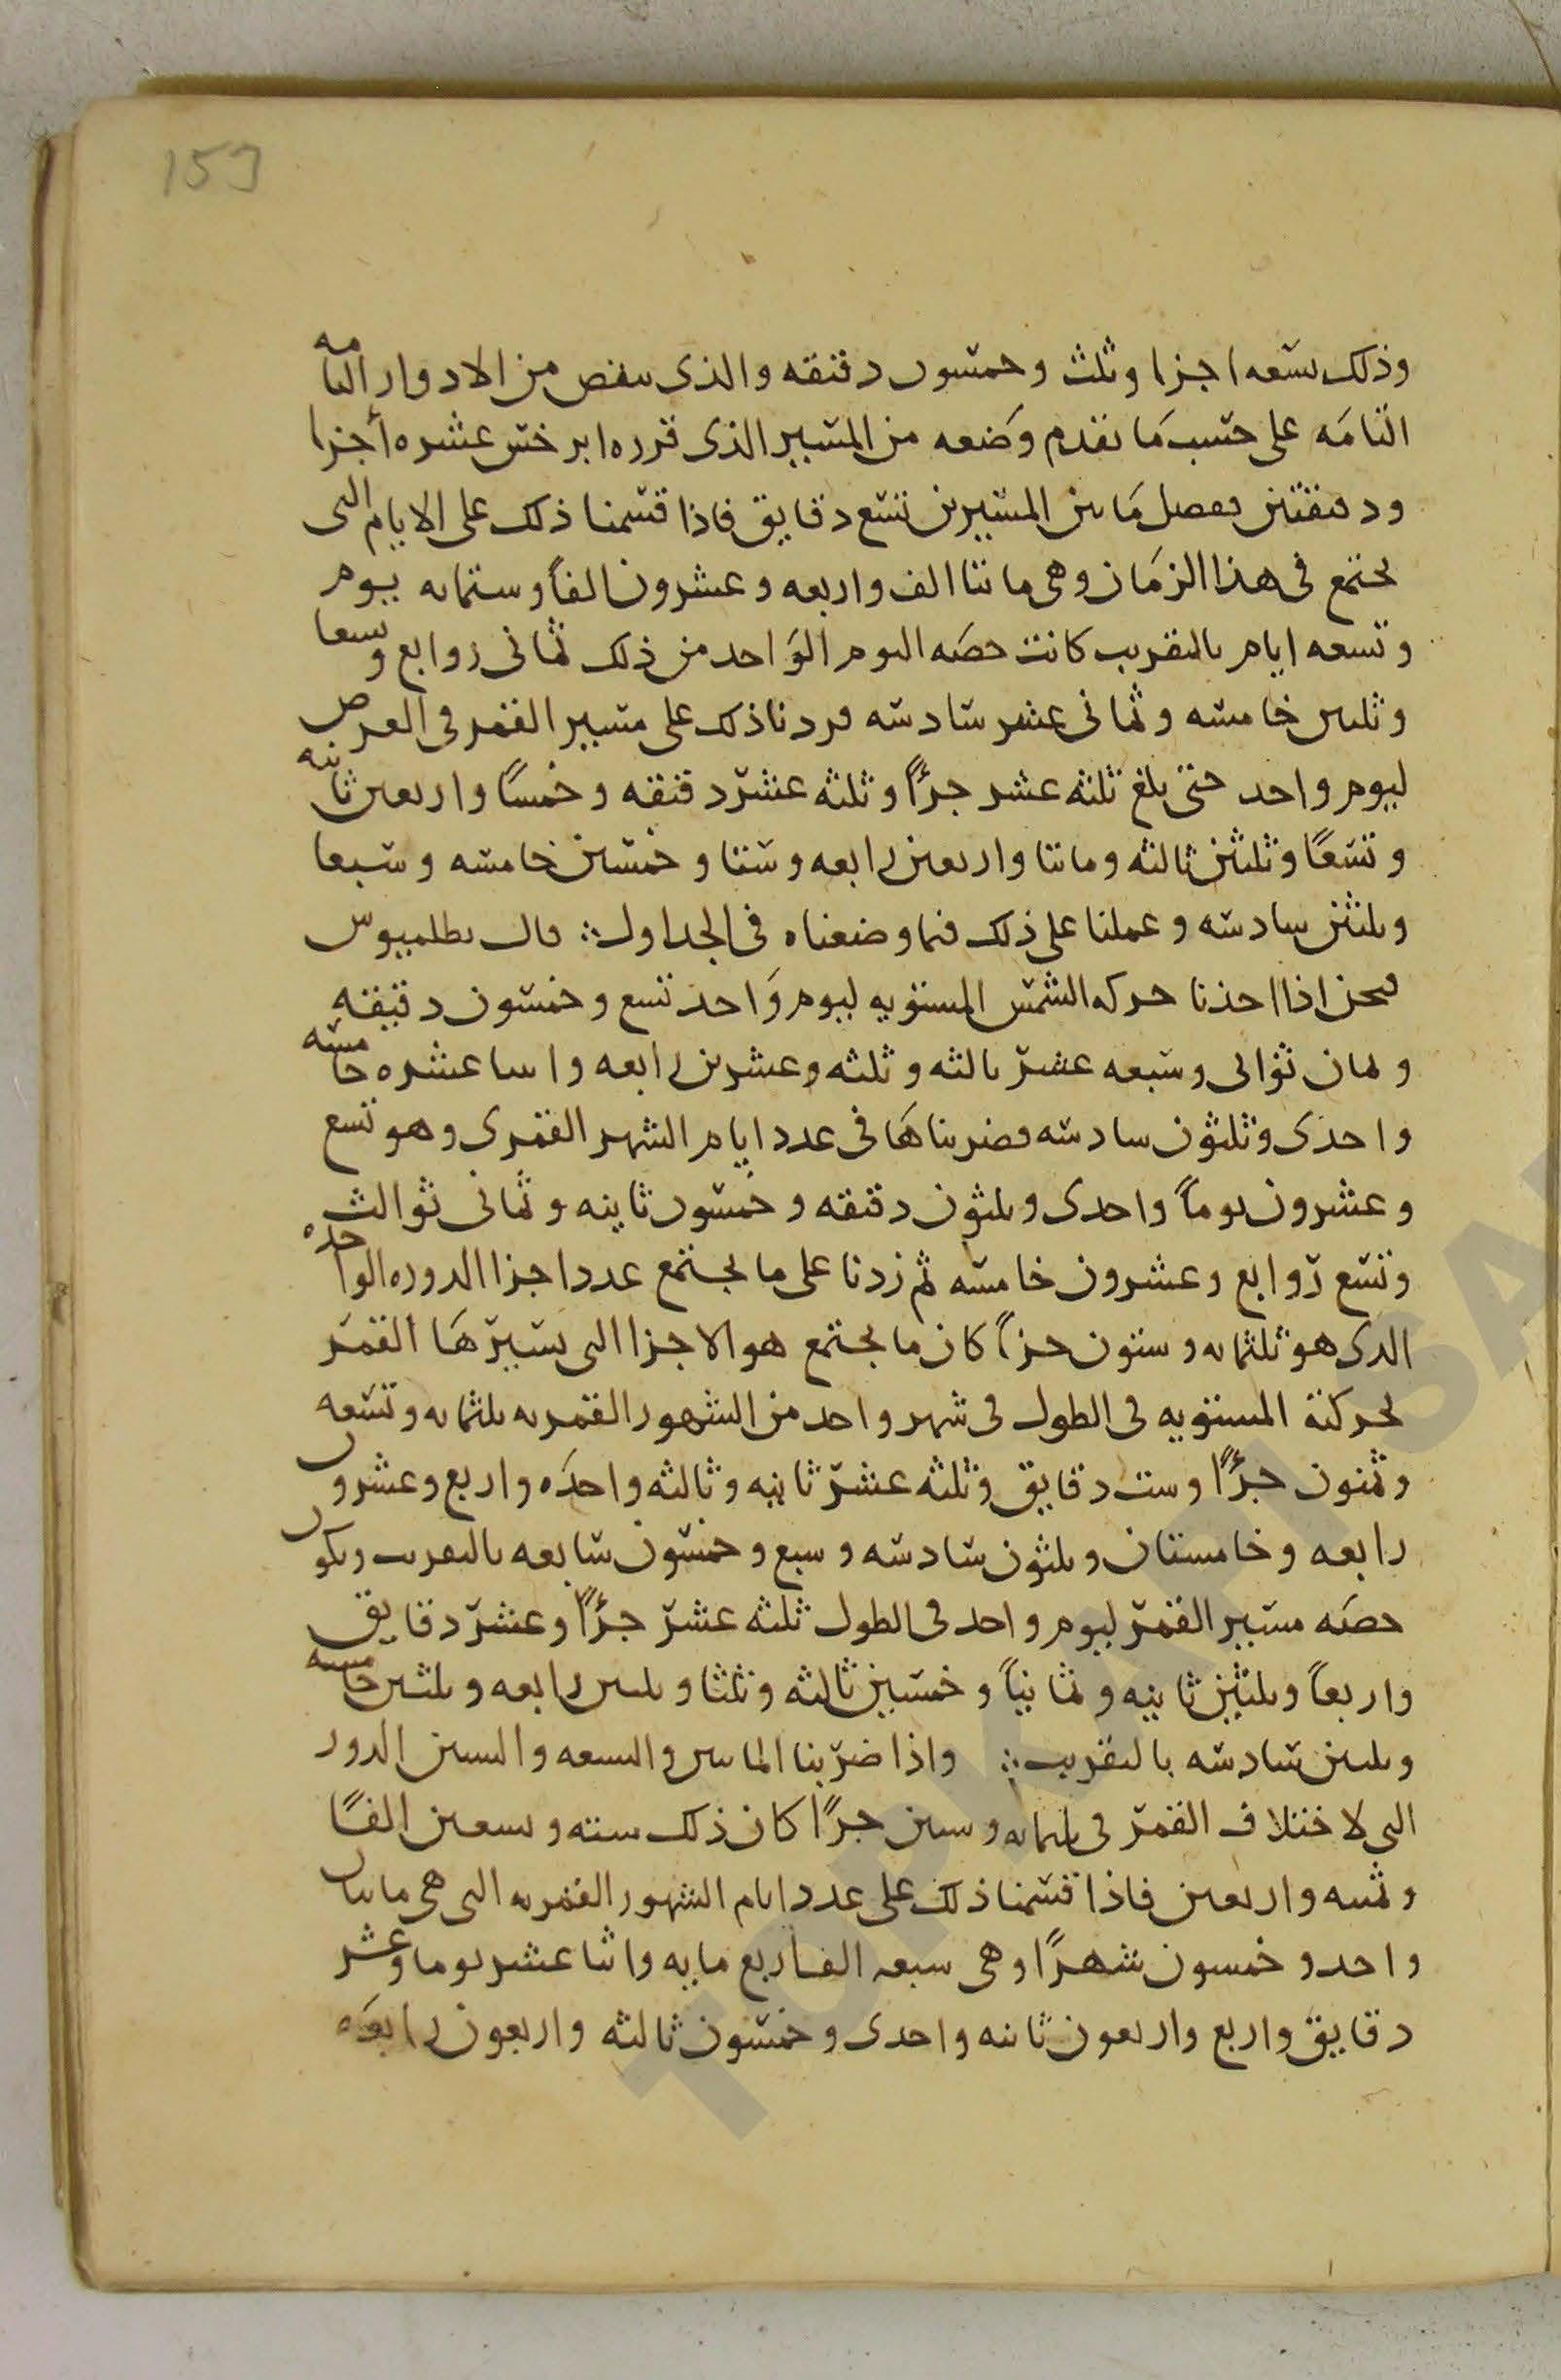 153
وذلك تسعه اجزا وثلث وخمسون دقيقه والذى ينقص من الادوار التامه
التامه على حسب ما تقدم وضعه من المسير الذى قرره ابرخس عشره أجزا
ودقيقتين ففصل ما بين المسيرين تسع دقايق فاذا قسمنا ذلك على الايام التى
يجتمع فى هذا الزمان وهى مائتا الف واربعه وعشرون الفاً وستمايه يوم
وتسعه ايام بالتقريب كانت حصه اليوم الواحد من ذلك ثمانى روابع وتسعا
وثلثين خامسه وثمانى عشر سادسه فردنا ذلك على مسير القمر فى العرض
ليوم واحد حتى بلغ ثلثه عشر جزءًا وثلثه عشر دقيقه وخمسًا واربعين ثانيه
وتسعًا وثلثين ثالثه وماننا واربعين رابعه وستا وخمسين خامسه وسبعا
وثلثين سادسه وعملنا على ذلك فيما وضعناه فى الجداول ∴ قال بطلميوس
فنحن اذا اخذنا حركه الشمس المستويه ليوم واحد تسع وخمسون دقيقه
وثمان ثوانى وسبعه عشر ثالثه وثلثه وعشرين رابعه واثنا عشره خامسه
واحدى وثلثون سادسه فضربناها فى عدد ايام الشهر القمرى وهو تسع
وعشرون يوماً واحدى وثلثون دقيقه وخمسون ثانيه وثمانى ثوالث
وتسع روابع وعشرون خامسه ثم زدنا على ما يجتمع عدد اجزا الدوره الواحده
الذى هو ثلثمايه وستون جزأً كان ما يجتمع هو الاجزا التى يسيرها القمر
بحركته المستويه فى الطول فى شهر واحد من الشهور القمريه ثلثمايه وتسعه
وثمنون جزءًا وست دقايق وثلثه عشر ثانيه وثالثه واحده واربع وعشرون
رابعه وخامستان وثلثون سادسه وسبع وخمسون سابعه بالتقريب ويكون
حصه مسير القمر ليوم واحد فى الطول ثلثه عشر جزءًا وعشر دقايق
واربعاً وثلثين ثانيه وثمانياً وخمسين ثالثه وثلثا وثلثين رابعه وثلثين خامسه
وثلثين سادسه بالتقريب ∴ واذا ضربنا المائتين والتسعه والستين الدور
التى لاختلاف القمر فى ثلثمايه وستين جزءًا كان ذلك سته وتسعين الفًا
وثمنيه واربعين فاذا قسمنا ذلك على عدد ايام الشهور القمريه التى هى مائتان
واحد وخمسون شهرًا وهى سبعه الف اربع مايه واثنا عشر يوما وعشر
دقايق واربع واربعون ثانيه واحدى وخمسون ثالثه واربعون رابعه